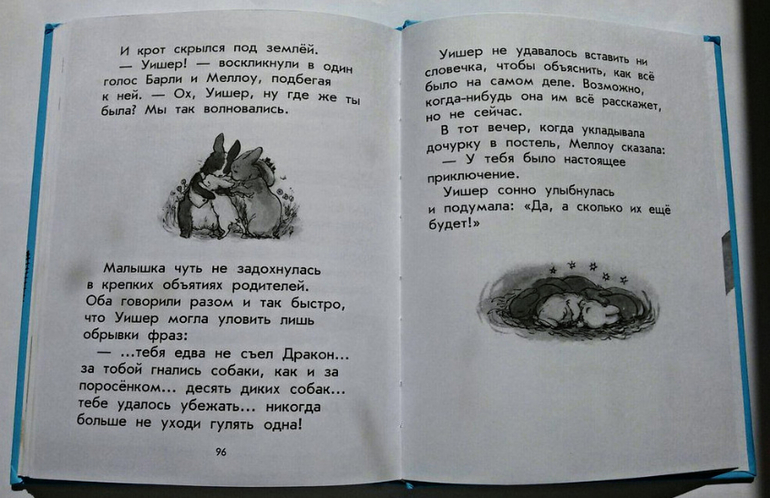 И крот скрылся под землёй.
— Уишер! — воскликнули в один
голос Барли и Меллоу, подбегая
к ней. — Ох, Уишер, ну где же ты
была? Мы так волновались.
Малышка чуть не задохнулась
в крепких объятиях родителей.
Оба говорили разом и так быстро,
что Уишер могла уловить лишь
обрывки фраз:
— ...тебя едва не съел Дракон...
за тобой гнались собаки, как и за
поросёнком... десять диких собак...
тебе удалось убежать... никогда
больше не уходи гулять одна!
96
Уишер не удавалось вставить ни
словечка, чтобы объяснить, как всё
было на самом деле. Возможно,
когда-нибудь она им всё расскажет,
но не сейчас.
В тот вечер, когда укладывала
дочурку в постель, Меллоу сказала:
— У тебя было настоящее
приключение.
Уишер сонно улыбнулась
и подумала: «Да, а сколько их ещё
будет!»